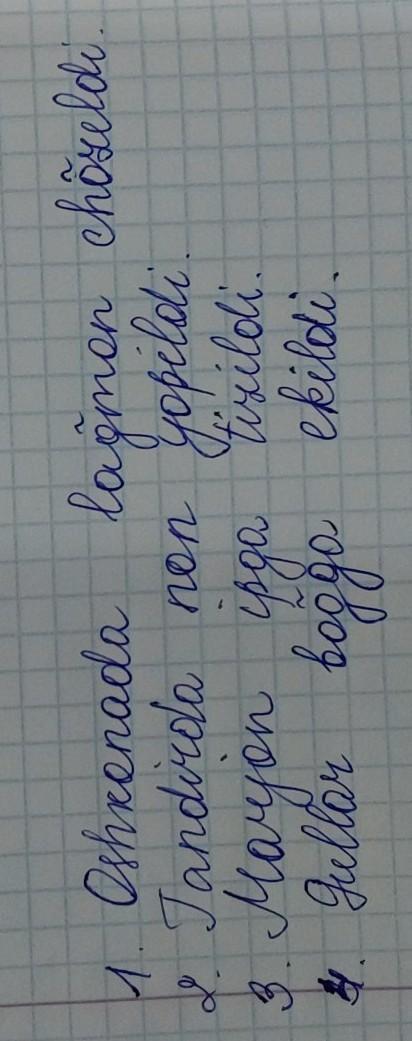 1. Oshxonada lag̃mon chõzildi.
2. Tandirda non yopildi.
3. Marjon ipga tizildi.
4. Gullar bog̃ga ekildi.